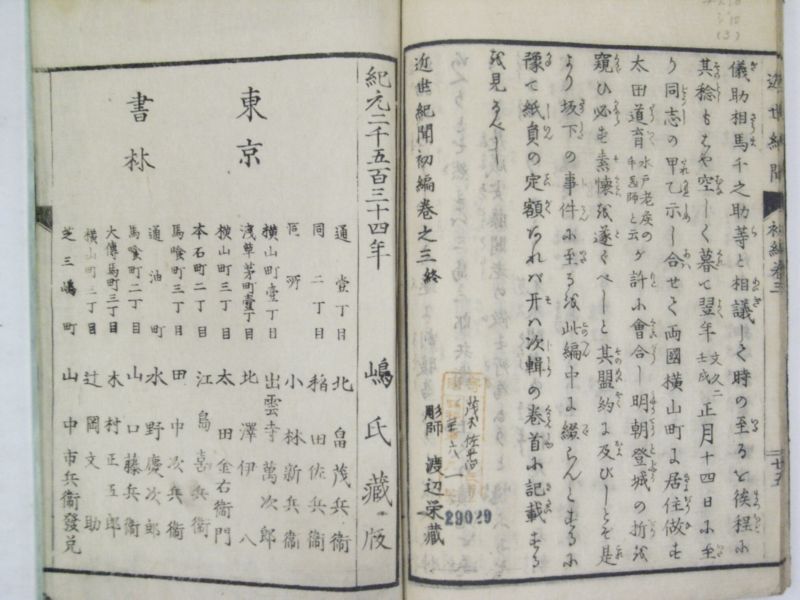 近世紀聞 初編巻三 廿五
儀助相馬千之助等と相議して時の至るを俟程に
其稔もはや空しく暮て翌年文久二壬戌正月十四日に至
り同志の甲乙示し合せて両國横山町に居住做す
太田道育水戸老侯の手医師と云が許に會合し明朝登城の折を
窺ひ必ず素懐を遂くべしと其盟約に及びしとぞ是
より坂下の事件に至るを此編中に綴らんとするに
豫て紙員の定額あれバ开ハ次輯の巻首に記載する
を見るべし
近世紀聞初編巻之三終
彫師 渡辺栄藏
29029
紀元二千五百三十四年 嶋氏藏版
東京
書林
通壹丁目 北畠茂兵衞
同二丁目 稲田佐兵衞
同所 小林新兵衞
横山町壹丁目 出雲寺萬次郎
浅草茅町壹丁目 北澤伊八
横山町三丁目 太田金右衞門
本石町二丁目 江島喜兵衞
馬喰町三丁目 田中次兵衞
通油町 水野慶次郎
馬喰町二丁目 山口藤兵衞
大傳馬町三丁目 木村正五郎
横山町二丁目 辻岡文助
芝三嶋町 山中市兵衞發兌